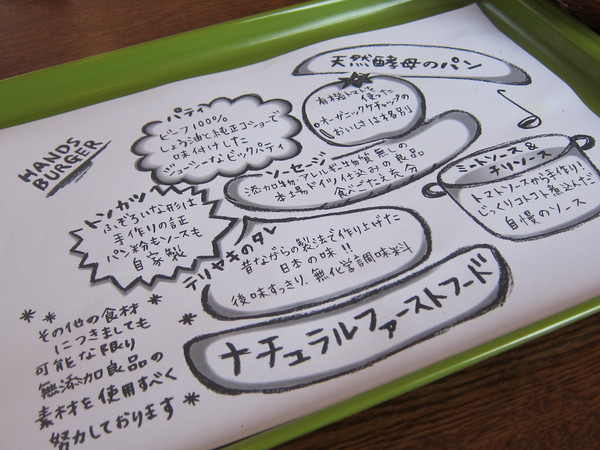 天然酵母のパン
HANDS
BURGER
パティ
ビーフ100%
しょう油と純正コショーで
味付けした
ジューシーなビッグパティ
有機トマトを使った
オーガニックケチャップの
おいしさは格別!
ソーセージ
添加物・アレルギー物質無しの
本場ドイツ仕込みの良品
食べごたえ充分
ミートソース&
チリソース
トマトソースから手作り!
じっくりコトコト煮込んだ
自慢のソース
トンカツ
ふぞろいな形は
手作りの証
パン粉もソースも
自家製
テリヤキのタレ
昔ながらの製法で作り上げた
日本の味!!
後味すっきり、無化学調味料
ナチュラルファーストフード
その他の食材
につきましても
可能な限り
無添加良品の
素材を使用すべく
努力しております